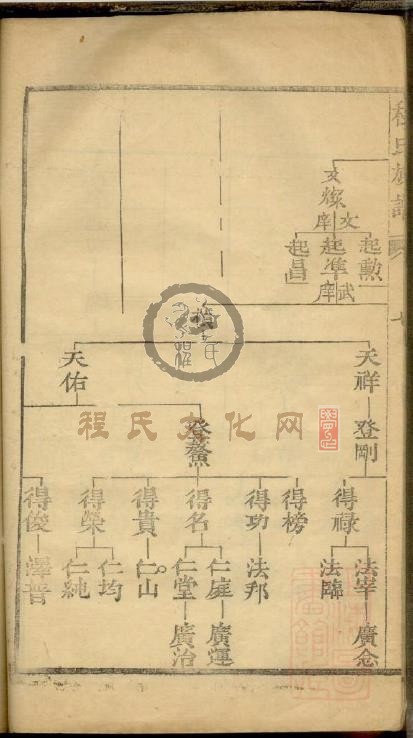 程氏族譜
七
文燦 文庠
起勳
起準 武庠
起昌
天祥
天佑
登剛
登鰲
得祿
得榜
得功
得名
得貴
得榮
得俊
法宰
法臨
法邦
仁庭
仁堂
仁山
仁均
仁純
澤普
廣念
廣運
廣治
程氏文化网